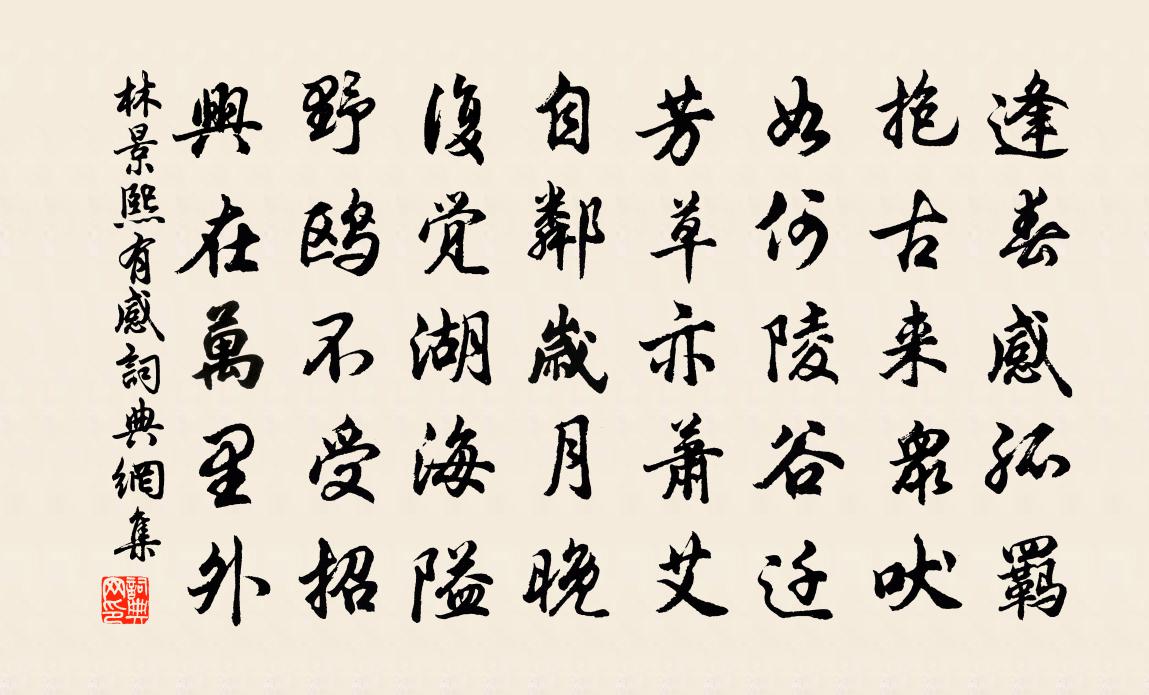 逢春感孤羈
抱古来衆吠
如何陵谷迁
芳草亦蕭艾
自鄰歲月晚
復覚湖海隘
野鷗不受招
興在萬里外
林景熙有感詞典網集
詞典网印